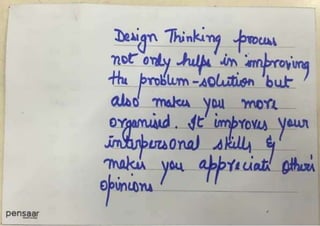 Design Thinking process
not only helps in improving
the problem-solution but
also makes you more
organised. It improves your
interpersonal skills &
makes you appreciate other's
opinions
pensaar